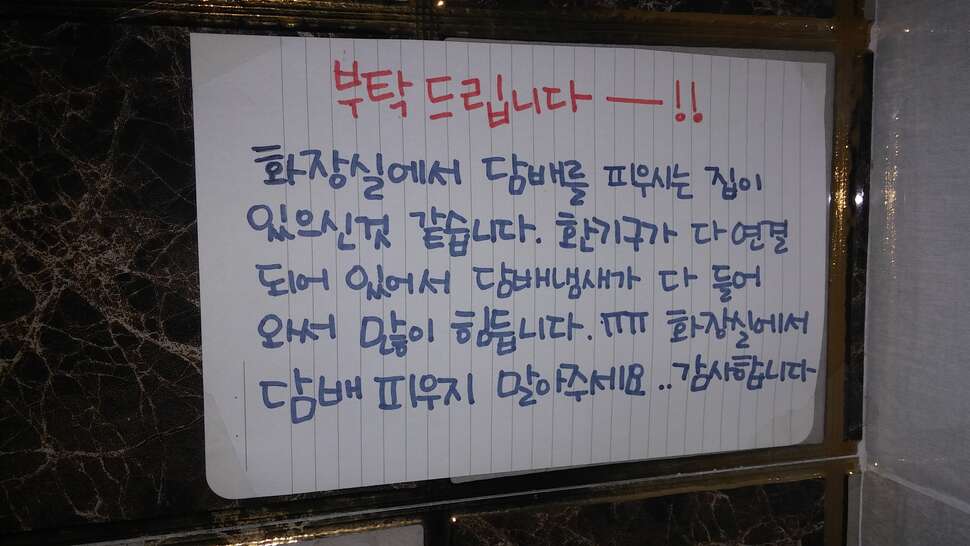 부탁 드립니다 ㅡ!!
화장실에서 담배를 피우시는 집이
있으신것 같습니다. 환기구가 다 연결
되어 있어서 담배냄새가 다 들어
와서 많이 힘듭니다. ㅠㅠ 화장실에서
담배 피우지 말아주세요..감사합니다